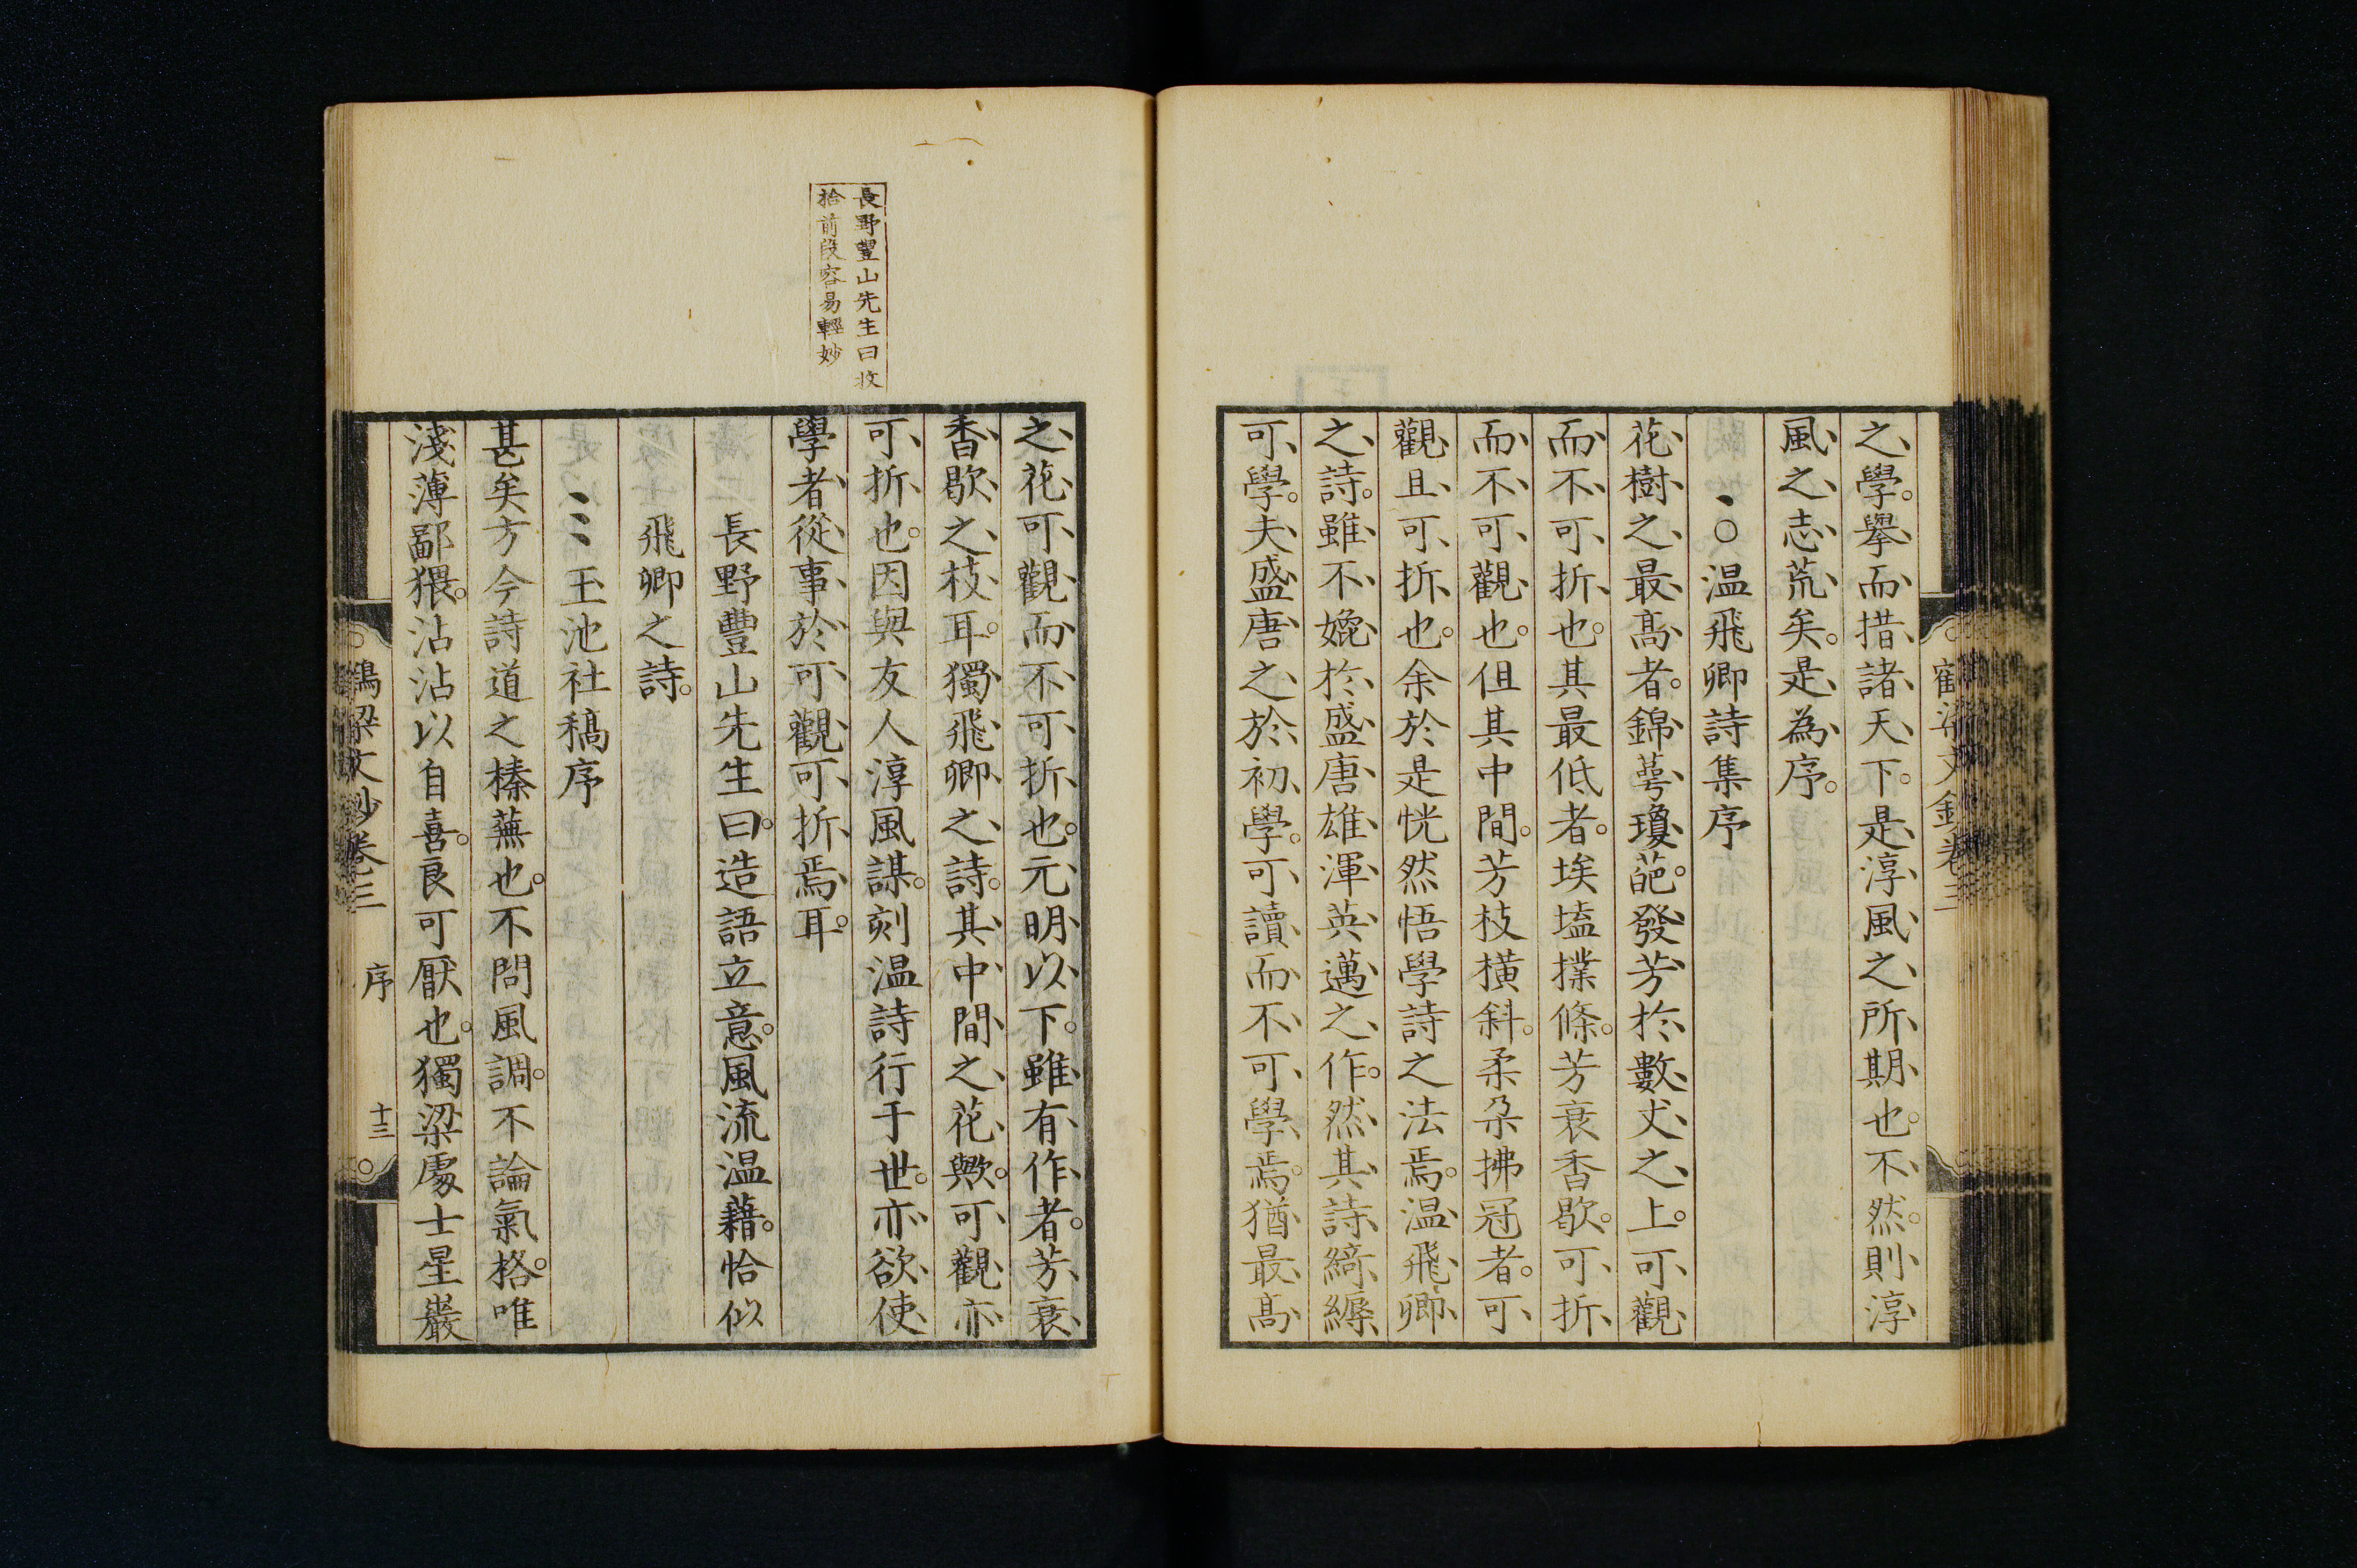 之學。擧而措諸天下。是淳風之所期也。不然。則淳
風之志荒矣。是為序。
溫飛卿詩集序
花樹之最高者。錦萼瓊葩。發芳於數丈之上。可觀
而不可折也。其最低者。埃壒撲條。芳衰香歇。可折
而不可觀也。但其中間。芳枝橫斜。柔朶拂冠者。可
觀且可折也。余於是恍然悟學詩之法焉。溫飛卿
之詩。雖不媲於盛唐雄渾英邁之作。然其詩綺縟
可學。夫盛唐之於初學。可讀而不可學焉。猶最高
之花可觀而不可折也。元明以下。雖有作者。芳衰
香歇之枝耳。獨飛卿之詩。其中間之花歟。可觀亦
可折也。因與友人淳風謀。刻溫詩行于世。亦欲使
學者從事於可觀可折焉耳。
長野豐山先生曰。造語立意。風流溫藉。恰似
飛卿之詩。
玉池社稿序
甚矣方今詩道之榛蕪也。不問風調。不論氣格。唯
淺薄鄙猥。沾沾以自喜。良可厭也。獨梁處士星巖
長野豐山先生曰收
拾前段容易輕妙
梁文鈔卷三 序 十三